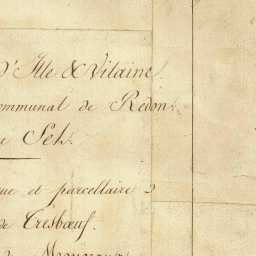 D'Ille & Vilaine.
ommunal de Redon.
e Sel.
ue et parcellaire
de Tresbœuf.